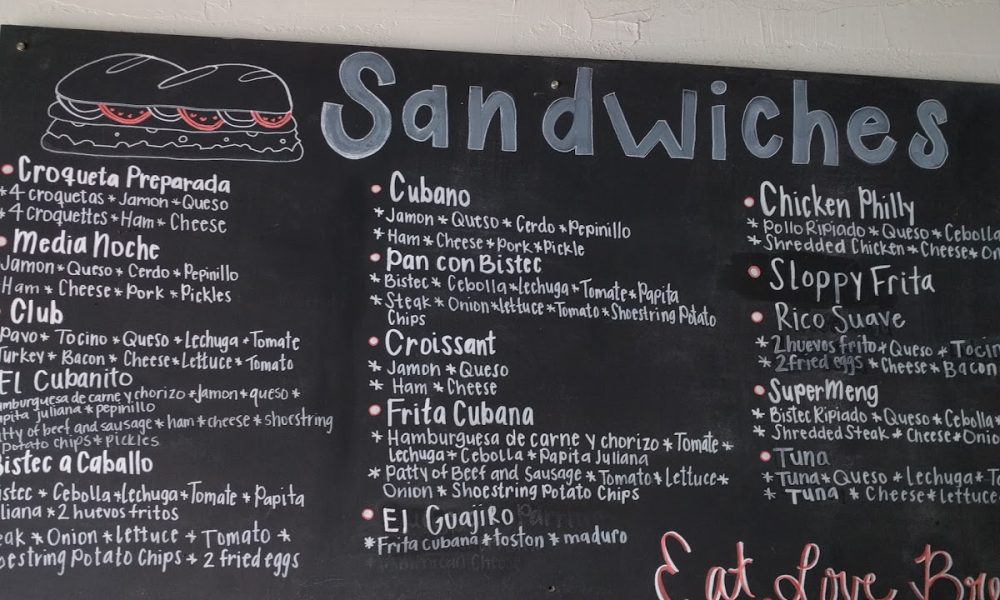 Sandwiches
Croqueta Preparada
*4 croquetas * Jamon * Queso
*4 croquettes * Ham * Cheese
Media Noche
Jamon * Queso * Cerdo * Pepinillo
Ham * Cheese * Pork * Pickles
Club
Pavo * Tocino * Queso * Lechuga * Tomate
Turkey * Bacon * Cheese * Lettuce * Tomato
El Cubanito
hamburguesa de carne y chorizo * Jamon * queso *
papita juliana * pepinillo
Patty of beef and sausage * ham * cheese * shoestring
Potato chips * pickles
Bistec a Caballo
Bistec * Cebolla * Lechuga * Tomate * Papita
Juliana * 2 huevos fritos
Steak * Onion * lettuce * Tomato *
Shoestring Potato Chips * 2 fried eggs
Cubano
* Jamon * Queso * Cerdo * Pepinillo
* Ham * Cheese * Pork * Pickle
Pan con Bistec
* Bistec * Cebolla * Lechuga * Tomate * Papita
* Steak * Onion * lettuce * Tomato * Shoestring Potato
Chips
Croissant
* Jamon * Queso
* Ham * Cheese
Frita Cubana
* Hamburguesa de carne y chorizo * Tomate *
Lechuga * Cebolla * Papita Juliana
* Patty of Beef and Sausage * Tomato * Lettuce *
Onion * Shoestring Potato Chips
El Guajiro
* Frita Cubana * toston * maduro
Chicken Philly
* Pollo Ripiado * Queso * Cebolla
* Shredded Chicken * Cheese *
Sloppy Frita
Rico Suave
* 2 huevos frito * Queso *
* 2 fried eggs * Cheese * Bacon
SuperMeng
* Bistec Ripiado * Queso * Cebolla *
* Shredded Steak * Cheese *
Tuna
* Tuna * Queso * Lechuga *
* Tuna * Cheese * Lettuce
Eat Love